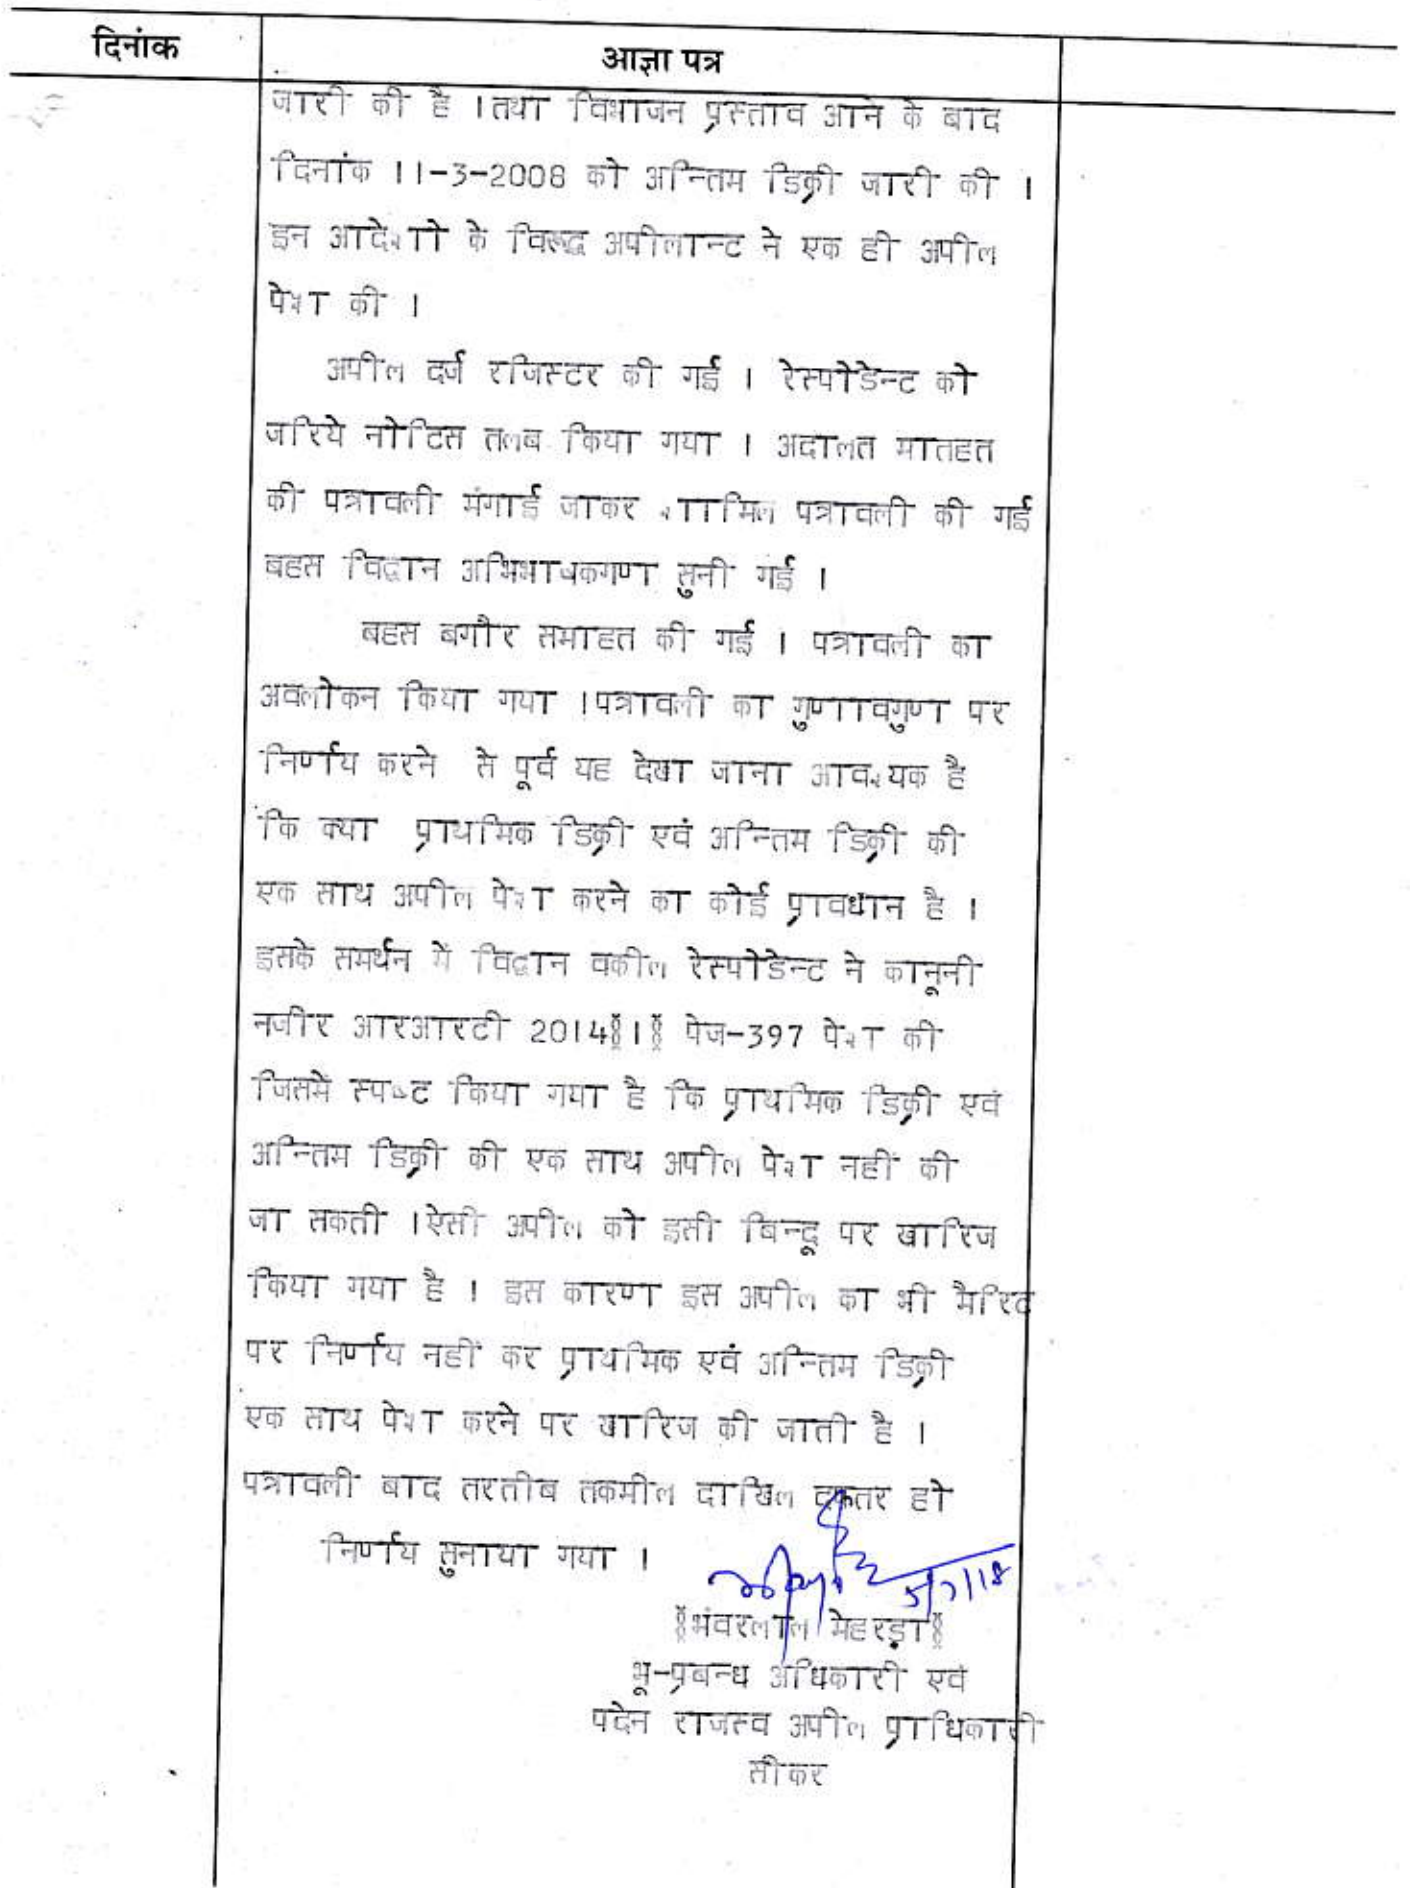 दिनांक आज्ञा पत्र
जारी की है ।तथा विभाजन प्रस्ताव आने के बाद
दिनांक 11-3-2008 को अन्तिम डिक्री जारी की ।
इन आदेशो के विरूद्ध अपीलान्ट ने एक ही अपील
पेश की ।
अपील दर्ज रजिस्टर की गई । रेस्पोडेन्ट को
जरिये नोटिस तलब किया गया । अदालत मातहत
की पत्रावली मंगाई जाकर शामिल पत्रावली की गई
बहस विद्वान अभिभाषकगण सुनी गई ।
बहस बगौर समाहत की गई । पत्रावली का
अवलोकन किया गया ।पत्रावली का गुणावगुण पर
निर्णय करने से पूर्व यह देखा जाना आवश्यक है
कि क्या प्राथमिक डिक्री एवं अन्तिम डिक्री की
एक साथ अपील पेश करने का कोई प्रावधान है ।
इसके समर्थन में विद्वान वकील रेस्पोडेन्ट ने कानूनी
नजीर आरआरटी 2014§1§ पेज-397 पेश की
जिसमें स्पष्ट किया गया है कि प्राथमिक डिक्री एवं
अन्तिम डिक्री की एक साथ अपील पेश नहीं की
जा सकती ।ऐसी अपील को इसी बिन्दू पर खारिज
किया गया है । इस कारण इस अपील का भी मैरिट
पर निर्णय नहीं कर प्राथमिक एवं अन्तिम डिक्री
एक साथ पेश करने पर खारिज की जाती है ।
पत्रावली बाद तरतीब तकमील दाखिल दफ्तर हो
निर्णय सुनाया गया ।
§भंवरलाल मेहरड़ा§
भू-प्रबन्ध अधिकारी एवं
पदेन राजस्व अपील प्राधिकारी
सीकर